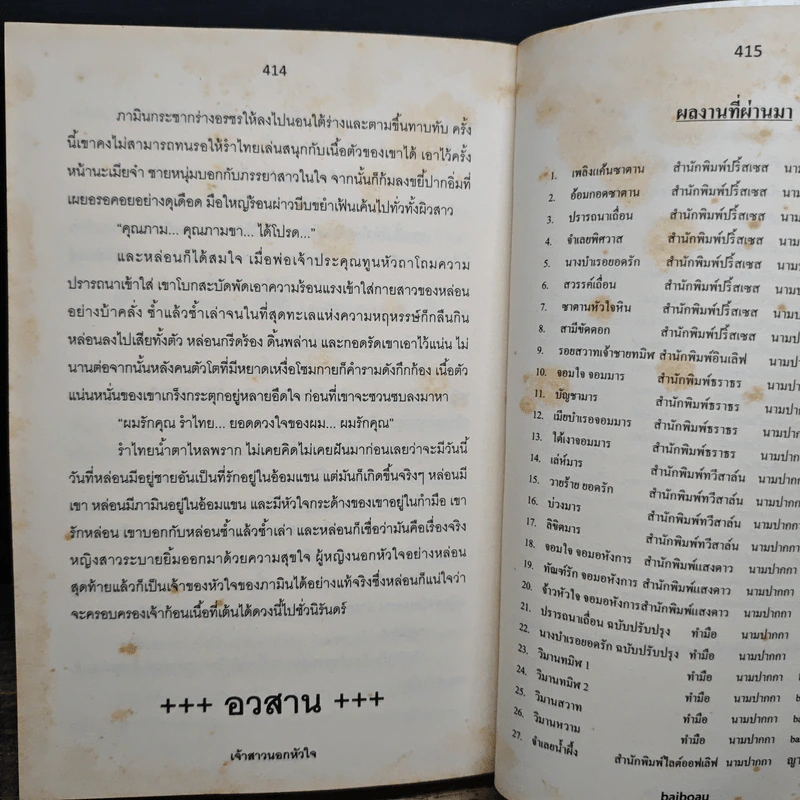 414
ภามินกระชากร่างอรชรให้ลงไปนอนใต้ร่างและตามขึ้นทาบทับ ครั้ง
นี้เขาคงไม่สามารถทนรอให้รำไทยเล่นสนุกกับเนื้อตัวของเขาได้ เอาไว้ครั้ง
หน้านะเมียจ๋า ชายหนุ่มบอกกับภรรยาสาวในใจ จากนั้นก็ก้มลงขยี้ปากอิ่มที่
เผยอรอคอยอย่างดุเดือด มือใหญ่ร้อนผ่าวบีบขยำเฟ้นเค้นไปทั่วทั้งผิวสาว
“คุณภาม... คุณภามขา... ได้โปรด...”
และหล่อนก็ได้สมใจ เมื่อพ่อเจ้าประคุณทูนหัวถาโถมความ
ปรารถนาเข้าใส่ เขาโบกสะบัดพัดเอาความร้อนแรงเข้าใส่กายสาวของหล่อน
อย่างบ้าคลั่ง ซ้ำแล้วซ้ำเล่าจนในที่สุดทะเลแห่งความหฤหรรษ์ก็กลืนกิน
หล่อนลงไปเสียทั้งตัว หล่อนกรีดร้อง ดิ้นพล่าน และกอดรัดเขาเอาไว้แน่น ไม่
นานต่อจากนั้นหลังคนตัวโตที่มีหยาดเหงื่อโซมกายก็คำรามดังกึกก้อง เนื้อตัว
แน่นหนั่นของเขาเกร็งกระตุกอยู่หลายอึดใจ ก่อนที่เขาจะซวนซบลงมาหา
“ผมรักคุณ รำไทย... ยอดดวงใจของผม... ผมรักคุณ”
รำไทยน้ำตาไหลพราก ไม่เคยคิดไม่เคยฝันมาก่อนเลยว่าจะมีวันนี้
วันที่หล่อนมีอยู่ชายอันเป็นที่รักอยู่ในอ้อมแขน แต่มันก็เกิดขึ้นจริงๆ หล่อนมี
เขา หล่อนมีภามินอยู่ในอ้อมแขน และมีหัวใจกระด้างของเขาอยู่ในกำมือ เขา
รักหล่อน เขาบอกกับหล่อนซ้ำแล้วซ้ำเล่า และหล่อนก็เชื่อว่ามันคือเรื่องจริง
หญิงสาวระบายยิ้มออกมาด้วยความสุขใจ ผู้หญิงนอกหัวใจอย่างหล่อน
สุดท้ายแล้วก็เป็นเจ้าของหัวใจของภามินได้อย่างแท้จริงซึ่งหล่อนก็แน่ใจว่า
จะครอบครองเจ้าก้อนเนื้อที่เต้นได้ดวงนี้ไปชั่วนิรันดร์
+++ อวสาน +++
เจ้าสาวนอกหัวใจ
415
ผลงานที่ผ่านมา
1. เพลิงแค้นซาตาน สำนักพิมพ์ปริ๊สเซส นาม
2. อ้อมกอดซาตาน สำนักพิมพ์ปริ๊สเซส นาม
3. ปรารถนาเถื่อน สำนักพิมพ์ปริ๊สเซส นาม
4. จำเลยพิศวาส สำนักพิมพ์ปริ๊สเซส นาม
5. นางบำเรอยอดรัก สำนักพิมพ์ปริ๊สเซส นาม
6. สวรรค์เถื่อน สำนักพิมพ์ปริ๊สเซส นาม
7. ซาตานหัวใจหิน สำนักพิมพ์ปริ๊สเซส นาม
8. สามีขัดดอก สำนักพิมพ์ปริ๊สเซส นาม
9. รอยสวาทเจ้าชายทมิฬ สำนักพิมพ์อินเลิฟ นาม
10. จอมใจ จอมมาร สำนักพิมพ์ธราธร นามป
11. บัญชามาร สำนักพิมพ์ธราธร นามป
12. เมียบำเรอจอมมาร สำนักพิมพ์ธราธร นามปา
13. ใต้เงาจอมมาร สำนักพิมพ์ธราธร นามปา
14. เล่ห์มาร สำนักพิมพ์ทวีสาล์น นามปา
15. วายร้าย ยอดรัก สำนักพิมพ์ทวีสาล์น นามปาก
16. บ่วงมาร สำนักพิมพ์ทวีสาล์น นามปาก
17. ลิขิตมาร สำนักพิมพ์ทวีสาล์น นามปาก
18. จอมใจ จอมอหังการ สำนักพิมพ์แสงดาว นามปาก
19. ทัณฑ์รัก จอมอหังการ สำนักพิมพ์แสงดาว นามปากก
20. จ้าวหัวใจ จอมอหังการสำนักพิมพ์แสงดาว นามปากกา
21. ปรารถนาเถื่อน ฉบับปรับปรุง ทำมือ นามปากกา
22. นางบำเรอยอดรัก ฉบับปรับปรุง ทำมือ นามปากกา
23. วิมานทมิฬ 1 ทำมือ นามปากกา
24. วิมานทมิฬ 2 ทำมือ นามปากกา
25. วิมานสวาท ทำมือ นามปากกา
26. วิมานหวาม ทำมือ นามปากกา
27. จำเลยน้ำผึ้ง สำนักพิมพ์ไลต์ออฟเลิฟ นามปากกา
baiboau